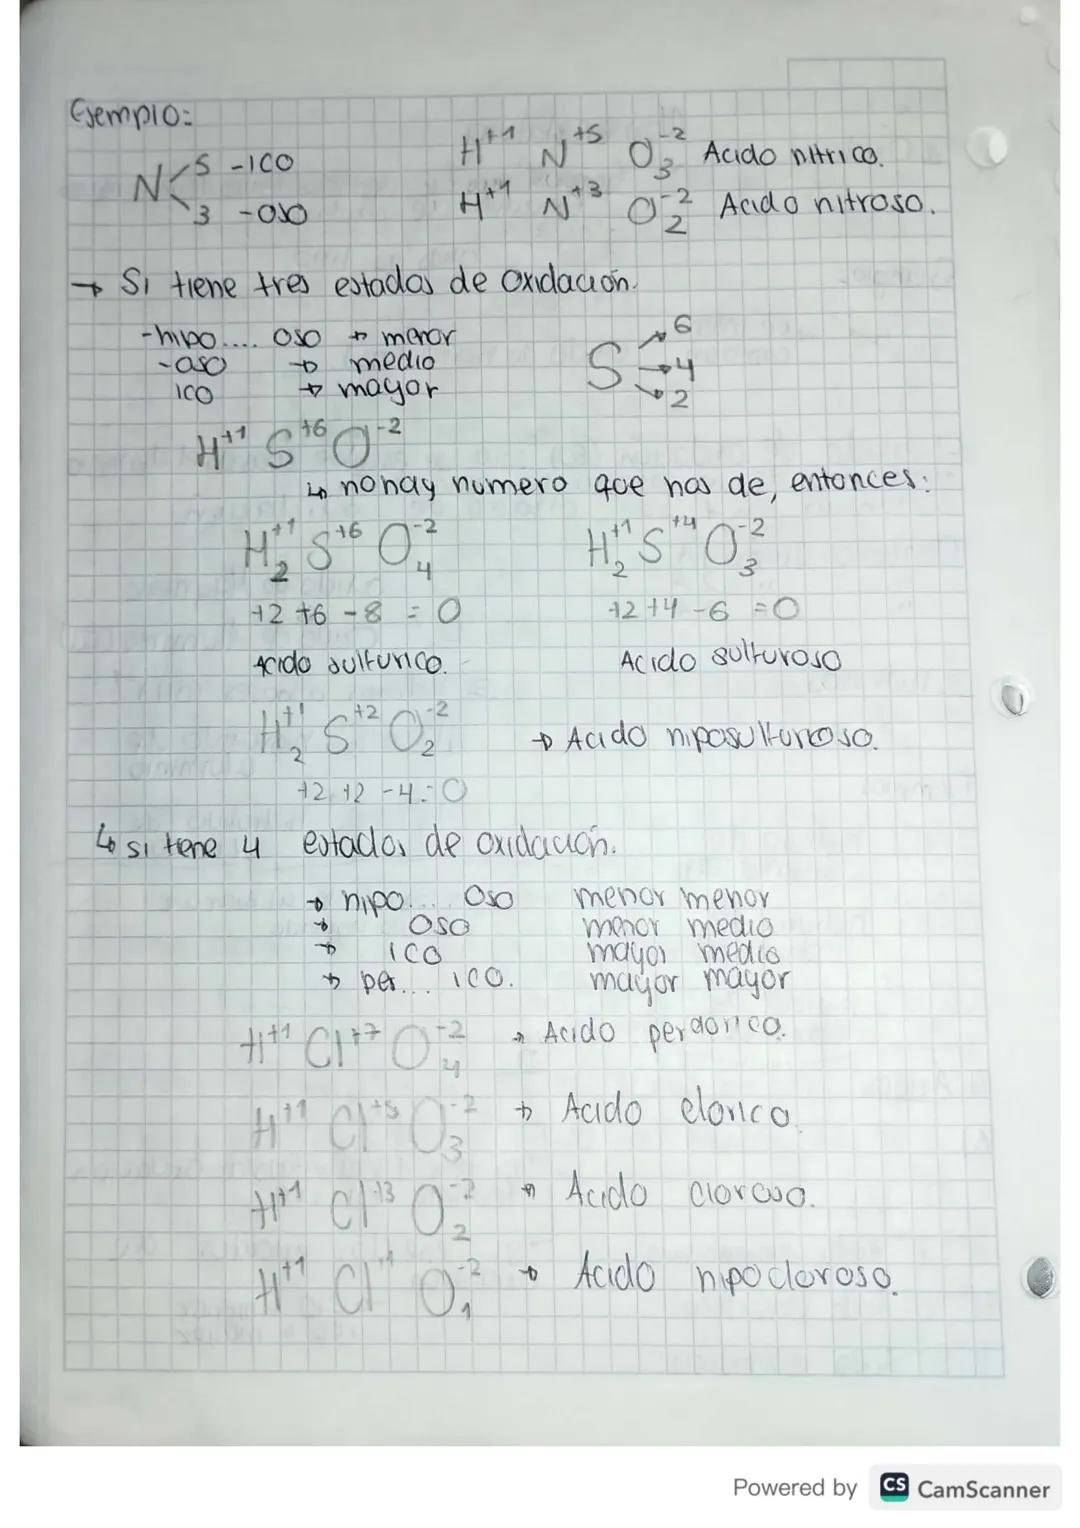 Ejemplo:
N 5 -ICO
3 -OSO
H+1 N+5 O3-2 Acido nitrico.
H+1 N+3 O2-2 Acido nitroso.
→ Si tiene tres estados de oxidación.
-hipo.... OSO → menor
-oso → medio
ICO → mayor
S → 6
→ 4
→ 2
H+1 S+6 O-2
↳ no hay numero que nos de, entonces:
H2+1 S+6 O4-2
+2 +6 -8 = 0
Acido sulfurico.
H2+1 S+4 O3-2
+2 +4 -6 = 0
Acido sulfuroso
H2+1 S+2 O2-2 → Acido hiposulfuroso.
+2 +2 -4 = 0
↳ si tiene 4 estados de oxidación.
→ hipo.... OSO menor menor
→ OSO menor medio
→ ICO mayor medio
→ per... ICO. mayor mayor
H+1 Cl+7 O4-2 → Acido perclorico.
H+1 Cl+5 O3-2 → Acido clorico.
H+1 Cl+3 O2-2 → Acido cloroso.
H+1 Cl+1 O1-2 → Acido hipocloroso.
Powered by CS CamScanner